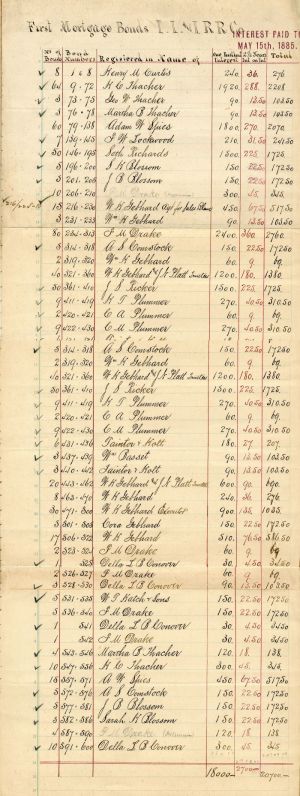 First Mortgage Bonds I.I.M.R.R.Co.
INTEREST PAID TO
MAY 15th, 1885.
No of Bonds Bond Numbers Registered in Name of One Interest Int on Int Total
8 1 " 8 Henry M Curtis 240. 36. 276
64 9 . 72 K C Thacher 1920. 288. 2208
3 73 . 75 Geo W Thacher 90. 13.50 103.50
3 76 . 78 Martha B Thacher 90. 13.50 103.50
60 79 . 138 Adam W Spies 1800. 270. 2070.
7 139 . 145 F W Lockwood 210. 31.50 241.50
50 146 . 195 Seth Richards 1500. 225. 1725.
5 196 . 200 S K Blossom 150. 22.50 172.50
5 201 . 205 J B Blossom 150. 22.50 172.50
10 206 . 215 300. 45. 345.
15 216 . 230 W K Gebhard 450. 67.50 517.50
3 231 . 233 Wm K Gebhard 90. 13.50 103.50
80 234 . 313 F M Drake 2400. 360. 2760.
5 314 . 318 A S Comstock 150. 22.50 172.50
2 319 . 320 Wm K Gebhard 60. 9. 69.
40 321 . 360 W K Gebhard & J N Platt Trustees 1200. 180. 1380.
50 361 . 410 J S Ricker 1500. 225. 1725.
9 411 . 419 K T Plummer 270. 40.50 310.50
2 420 . 421 C A Plummer 60. 9. 69.
9 422 . 430 C M Plummer 270. 40.50 310.50
5 314 . 318 A S Comstock 150. 22.50 172.50
2 319 . 320 Wm K Gebhard 60. 9. 69.
40 321 . 360 W K Gebhard & J N Platt Trustees 1200. 180. 1380.
50 361 . 410 J S Ricker 1500. 225. 1725.
9 411 . 419 K T Plummer 270. 40.50 310.50
2 420 . 421 C A Plummer 60. 9. 69.
9 422 . 430 C M Plummer 270. 40.50 310.50
6 431 . 436 Taintor & Holt 180. 27. 207.
3 437 . 439 Wm Basset 90. 13.50 103.50
3 440 . 442 Taintor & Holt 90. 13.50 103.50
20 443 . 462 W K Gebhard & J N Platt 600. 90. 690.
8 463 . 470 W K Gebhard 240. 36. 276
30 471 . 500 W K Gebhard Executor 900. 135. 1035.
5 501 . 505 Cora Gebhard 150. 22.50 172.50
17 506 . 522 W K Gebhard 510. 76.50 586.50
2 523 . 524 F M Drake 60. 9. 69.
1 525 Della L B Conover 30. 4.50 34.50
2 526 . 527 F M Drake 60. 9. 69.
3 528 . 530 Della L B Conover 90. 13.50 103.50
5 531 . 535 W T Hatch & Sons 150. 22.50 172.50
5 536 . 540 F M Drake 150. 22.50 172.50
1 541 Della L B Conover 30. 4.50 34.50
1 542 F M Drake 30. 4.50 34.50
4 543 . 546 Martha B Thacher 120. 18. 138.
10 547 . 556 K C Thacher 300. 45. 345.
15 557 . 571 A W Spies 450. 67.50 517.50
5 572 . 576 A S Comstock 150. 22.50 172.50
5 577 . 581 J B Blossom 150. 22.50 172.50
5 582 . 586 Sarah K Blossom 150. 22.50 172.50
4 587 . 590 F M Drake 120. 18 138
10 591 . 600 Della L B Conover 300. 45. 345.
18000— 2700— 20700—